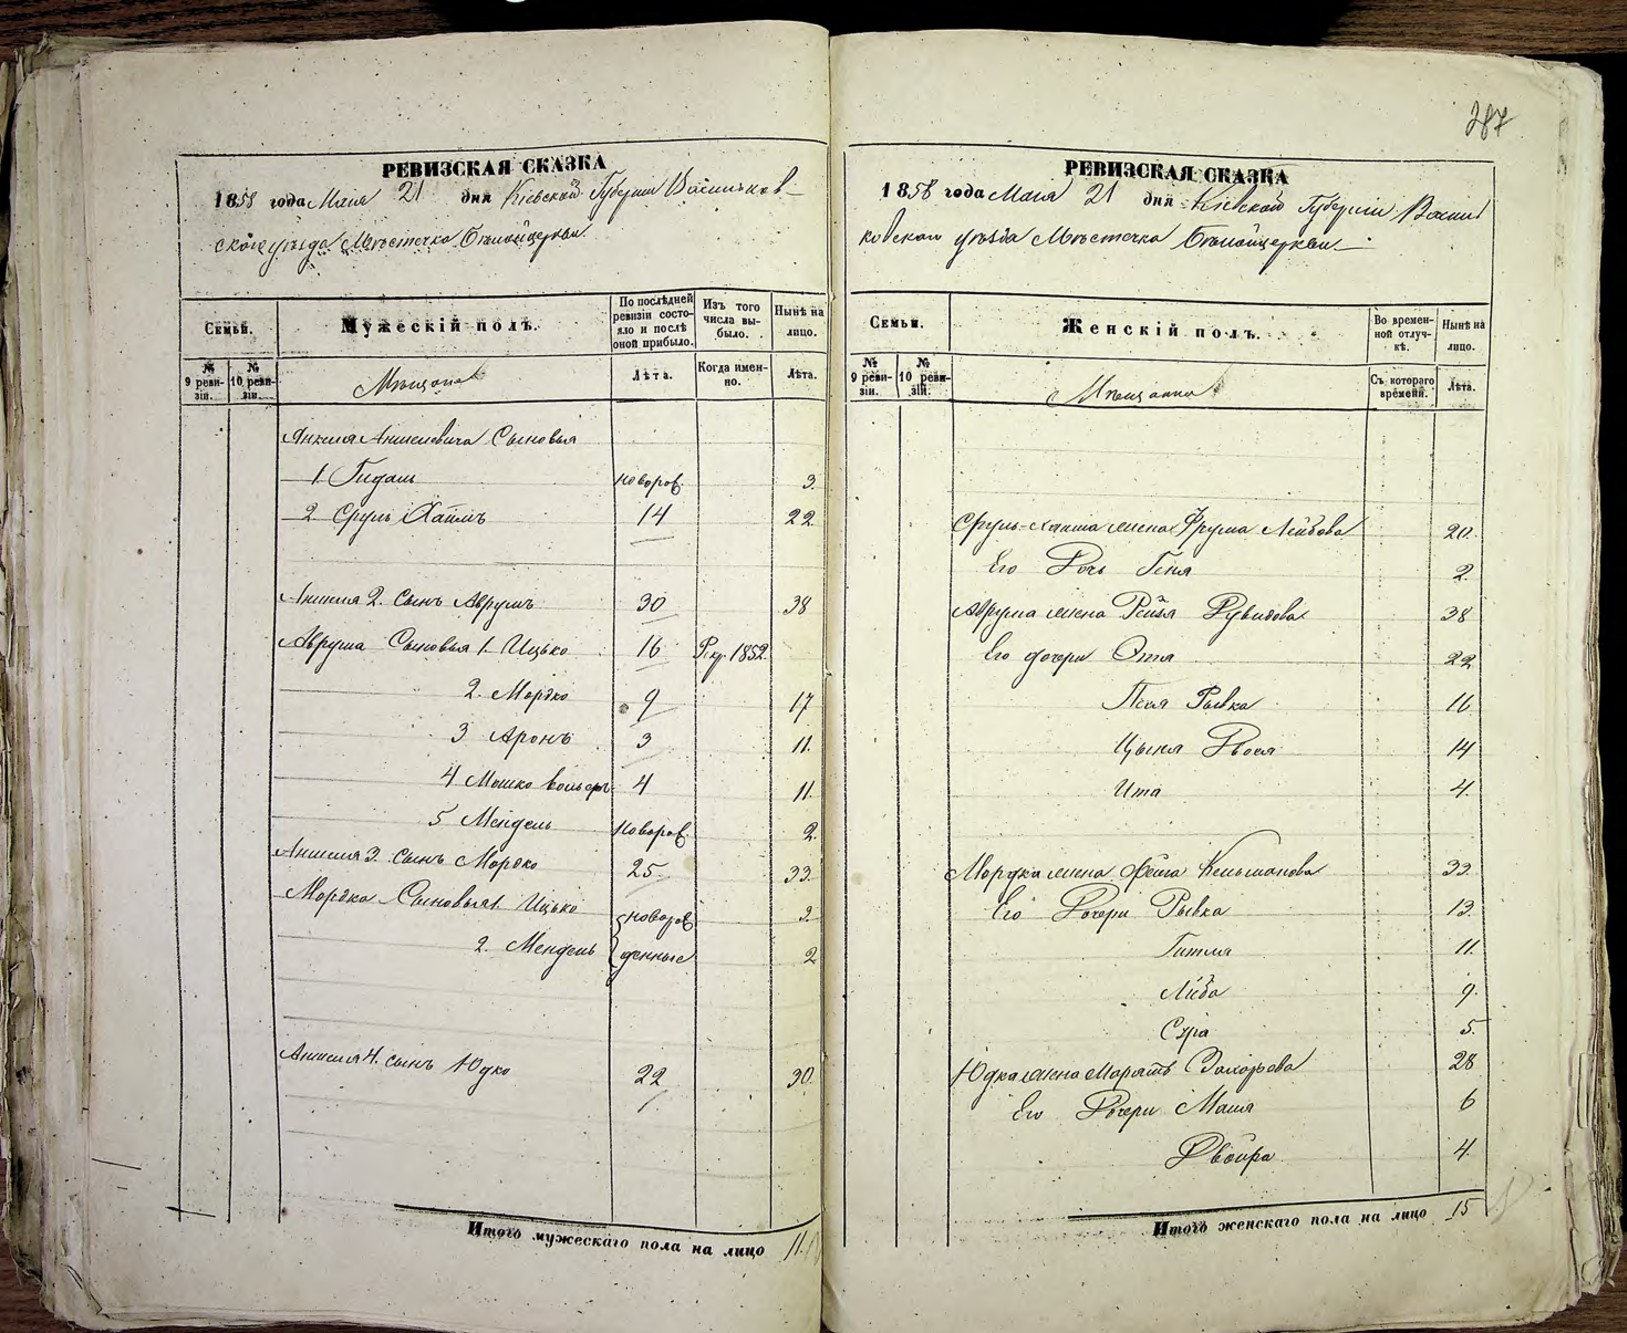 287
РЕВИЗСКАЯ СКАЗКА
1858 года Мая 21 дня Кіевской Губерніи Васильков-
скаго уѣзда Мѣстечка Бѣлойцеркви
Семьи.
Мужескій полъ.
По послѣдней ревизіи состо-
яло и послѣ оной прибыло.
Изъ того числа вы-
было.
Нынѣ на лицо.
№ 9 реви-
зіи.
№ 10 реви-
зіи.
Мѣщане
Лѣта.
Когда имен-
но.
Лѣта.
Аншелевича Сыновья
1 Гидаль новорож. 3.
2 Сруль Хаимъ 14 22
Аншеля 2. Сынъ Аврумъ 30 38
Аврума Сыновья 1. Ицько 16 Рекр. 1852
2. Мордко 9 17
3 Аронъ 3 11.
4 Мошко 4 11.
5 Мендель новорож. 2.
Аншеля 3. сынъ Мордко 25 33
Мордка Сыновья 1. Ицько новорож 3.
2. Мендель денные 2
Аншеля 4. сынъ Юдко 22 30.
Итого мужескаго пола на лицо 11.
РЕВИЗСКАЯ СКАЗКА
1858 года Мая 21 дня Кіевской Губерніи Василь
ковскаго уѣзда Мѣстечка Бѣлойцеркви
Семьи.
Женскій полъ.
Во времен-
ной отлуч-
кѣ.
Нынѣ на лицо.
№ 9 реви-
зіи.
№ 10 реви-
зіи.
Мѣщанки
Съ котораго времени.
Лѣта.
Сруль-Хаима жена Фрума Лейбова 20.
Его Дочь Геня 2.
Аврума жена Рейзя 38
Его дочери 22
Песя Рывка 16
Двося 14
Ита 4.
Мордка жена Фейга 33
Его Дочери Рывка 13.
Гитля 11.
Либа 9.
Сура 5.
Юдка жена 28
Его Дочери Маля 6
Двойра 4.
Итого женскаго пола на лицо 15